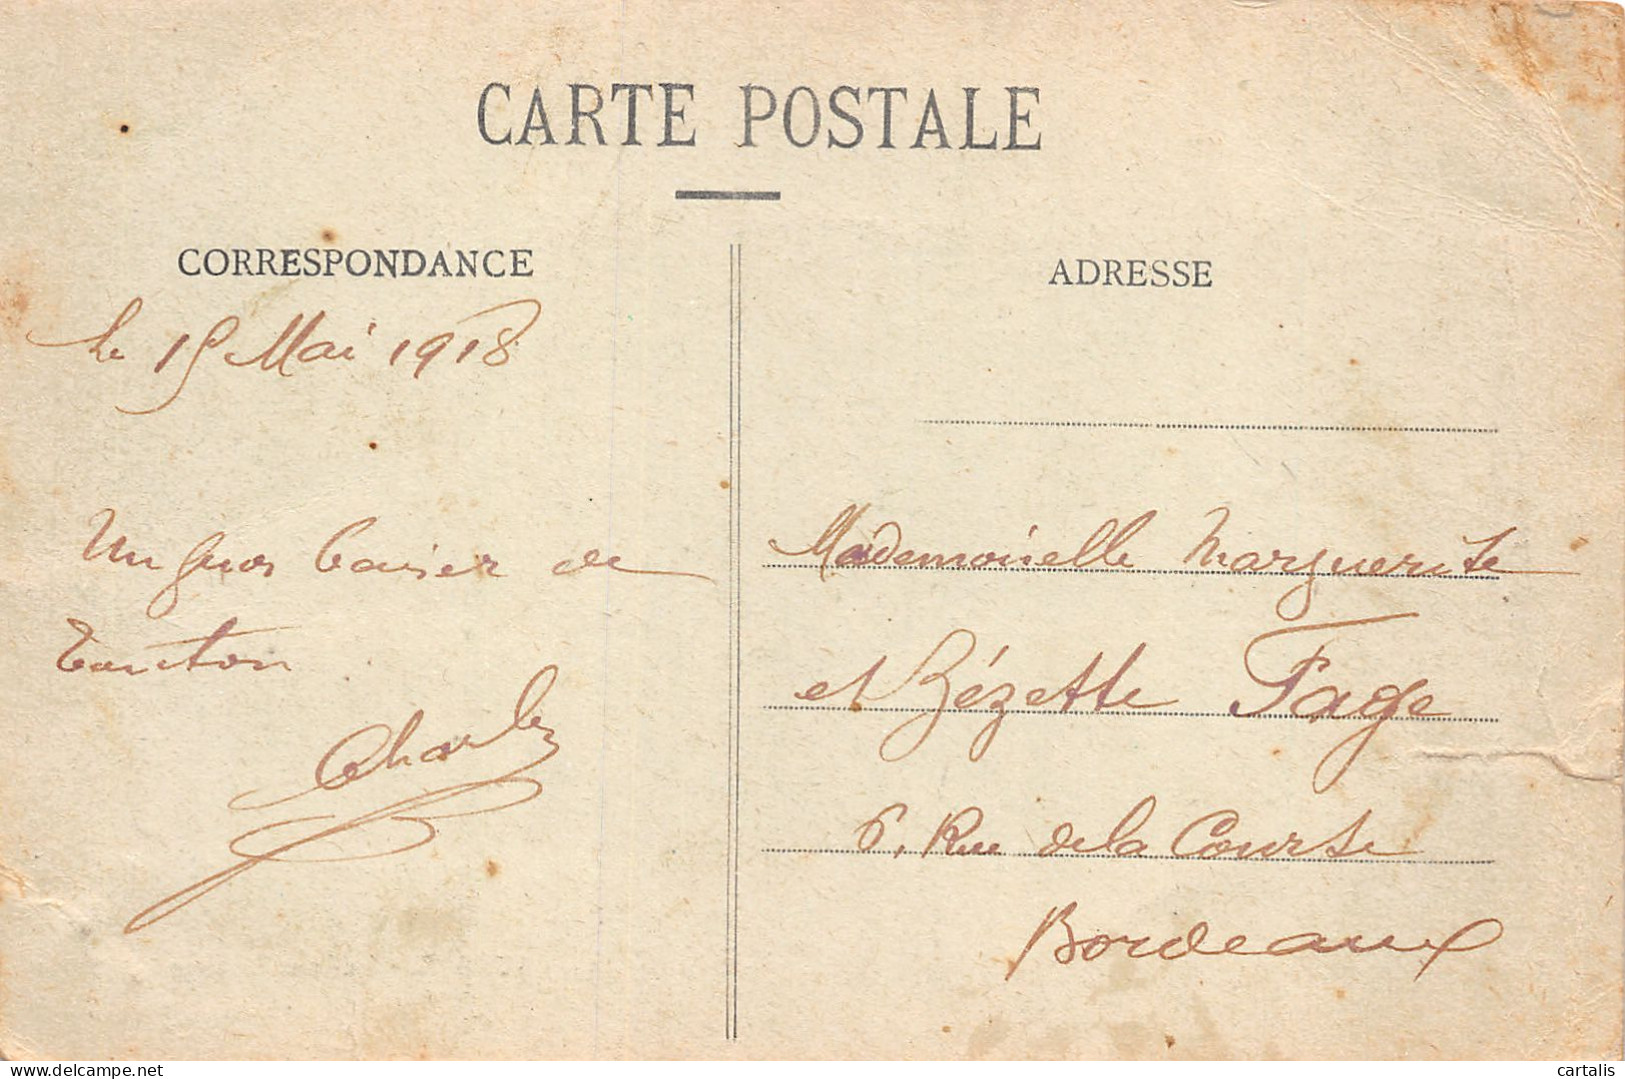 CARTE POSTALE
CORRESPONDANCE
le 15 Mai 1918
Un gros baiser de
Tonton
Charles
ADRESSE
Mademoiselle Marguerite
et Zézette Fage
6, Rue de la Course
Bordeaux
www.delcampe.net
cartalis